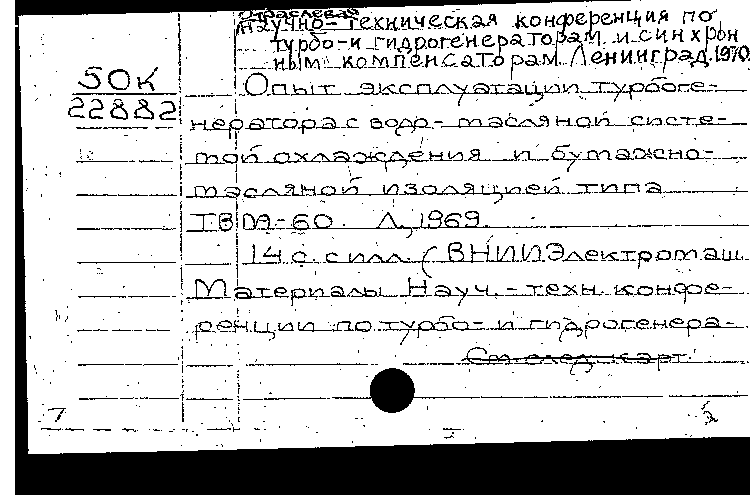 Отраслевая
Научно-техническая конференция по
турбо-и гидрогенераторам и синхрон
ным компенсаторам. Ленинград. 1970.
50К
22882
Опыт эксплуатации турбоге-
нератора с водо-масляной систе-
мой охлаждения и бумажно-
масляной изоляцией типа
ТВМ-60. Л., 1969.
14 с. с илл. (ВНИИЭлектромаш
Материалы Науч.-техн. конфе-
ренции по турбо- и гидрогенера-
См. след. карт.
7
2